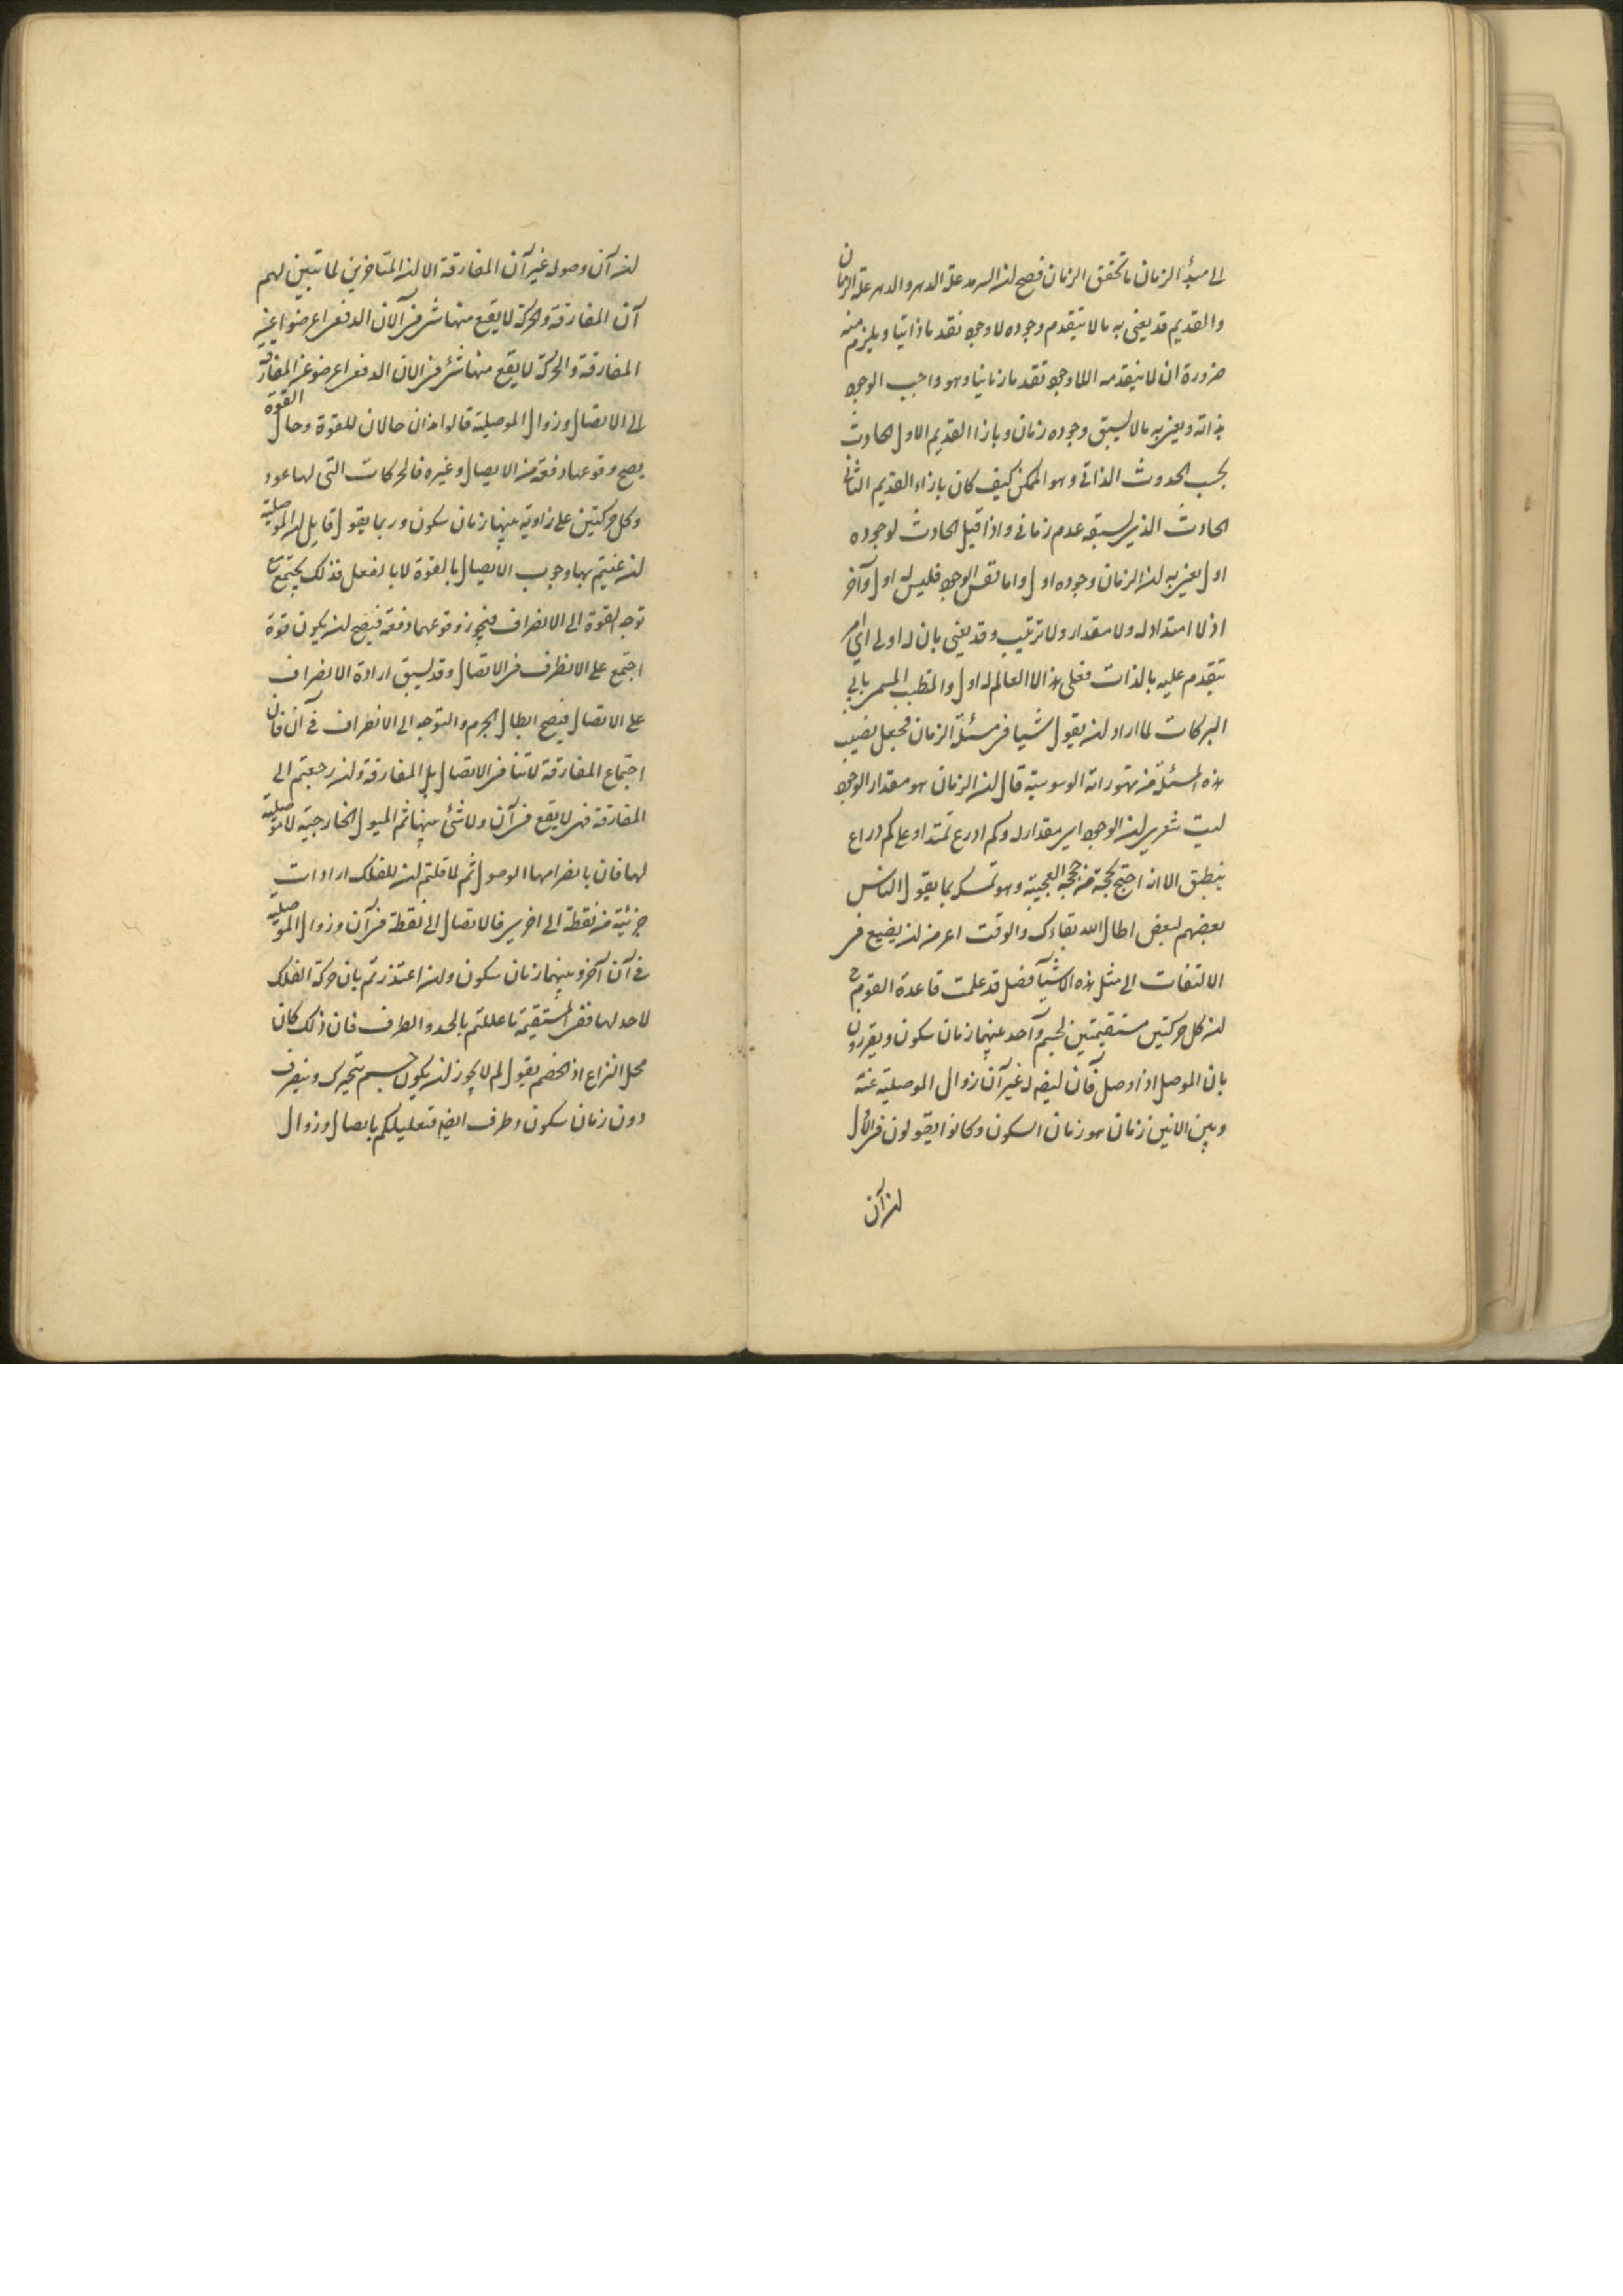 الى مبدأ الزمان ما تحقق الزمان فصح ان السرمد علة الدهر والدهر علة الزمان
والقديم قد يعنى به ما لا يتقدم وجوده لا وجود تقدما ذاتيا ويلزم منه
ضرورة ان لا يتقدمه اللاوجود تقدما زمانيا وهو واجب الوجود
بذاته ويعنى به ما لا يسبق وجوده زمان وبازا القديم الاول الحادث
بحسب الحدوث الذاتى وهو الممكن كيف كان بازاء القديم الثانى
الحادث الذى يسبقه عدم زمانى واذا قيل الحادث لوجوده
اول يعنى به ان الزمان وجوده اول واما نفس الوجود فليس له اول وآخر
اذ لا امتداد له ولا مقدار ولا ترتيب وقد يعنى بان له اول اى امر
يتقدم عليه بالذات فعلى هذا العالم له اول والمتطبب المسمى بابى
البركات لما اراد ان يقول شيا فى مسئلة الزمان فجعل نصيب
هذه المسئلة من تهوراته الوسوسية قال ان الزمان هو مقدار الوجود
ليت شعرى ان الوجود اى مقدار له وكم اذرع تمتد او على كم ذراع
ينطبق الا انه احتج بحجة من حججه العجيبة وهو تمسكه بما يقول الناس
بعضهم لبعض اطال الله بقاءك والوقت اعز من ان يضيع فى
الالتفات الى مثل هذه الاشيآ فصل قد علمت قاعدة القوم فى
ان كل حركتين مستقيمتين لجسم واحد بينهما زمان سكون ويقررون
بان الموصل اذا وصل فآن ايصاله غير آن زوال الموصلية عنه
وبين الانين زمان هو زمان السكون وكانوا يقولون فى الاول
ان آن
ان آن وصوله غير آن المفارقة الا ان المتاخرين لما تبين لهم
آن المفارقة والحركة لا يقع منها شى فى الآن الدفعى اعرضوا عن
المفارقة والحركة لا يقع منها شئ فى الآن الدفعى اعرضوا عن المفارقة
الى الاتصال وزوال الموصلية قالوا هذان حالان للقوة وحال القوة
يصح وقوعها دفعة من الايصال وغيره فالحركات التى لها عود
وكل حركتين على زاوية بينهما زمان سكون وربما يقول قايل ان الموصلية
ان عنيتم بها وجوب الايصال بالقوة لا بالفعل فذلك يجتمع مع
توجه القوة الى الانصراف فيجوز وقوعهما دفعة فيصح ان يكون قوة
اجتمع على الانطراف فى الاتصال وقد يسبق ارادة الانصراف
على الاتصال فيصح ايصال الجرم والتوجه الى الانصراف فى آن فان
اجتماع المفارقة لا تنافى الاتصال بل المفارقة وان رجعتم الى
المفارقة فهى لا يقع فى آن ولا شئ منها ثم الميول الخارجية لا موصلية
لها فان بانصرامها الوصول ثم لما قلتم ان للفلك ارادات
جزئية من نقطة الى اخرى فالاتصال الى نقطة فى آن وزوال الموصلية
فى آن آخر وبينهما زمان سكون وان اعتذرتم بان حركة الفلك
لا حد لها ففى المستقيمة ما عللتم بالحد والطرف فان ذلك كان
محل النزاع اذ الخصم يقول لم لا يجوز ان يكون جسم يتحرك وينصرف
دون زمان سكون وطرف ايضه فتعليلكم بايصال وزوال